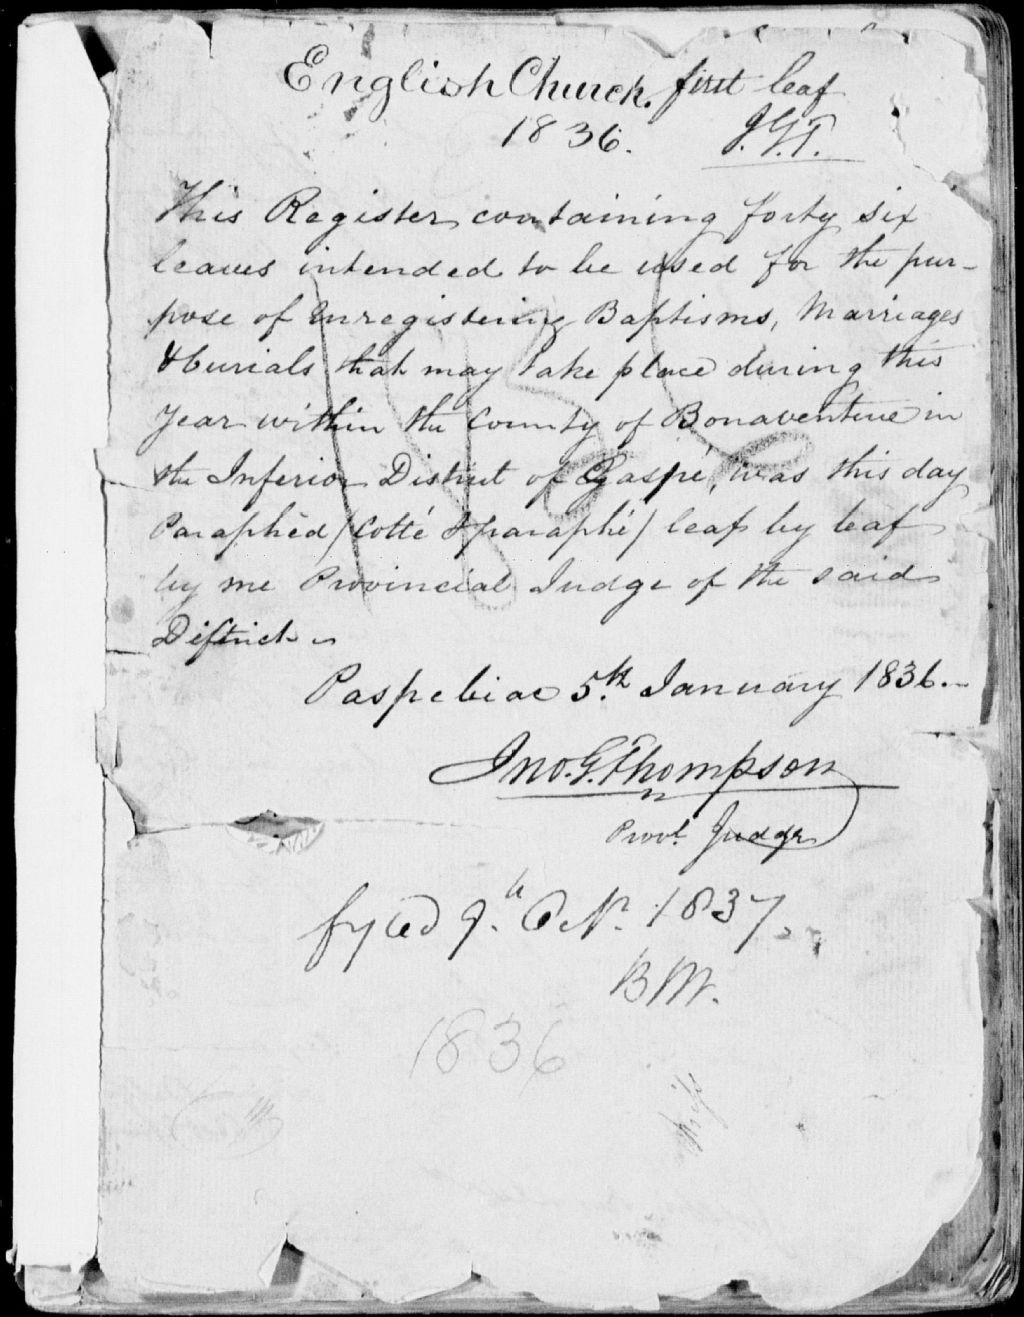 English Church. first leaf
1836. J.G.T.
This Register containing forty six
leaves intended to be used for the pur-
pose of Enregistering Baptisms, Marriages
& burials that may take place during this
Year within the County of Bonaventure in
the Inferior District of Gaspé, was this day
Paraphed / Cotté & paraphé / leaf by leaf
by me Provincial Judge of the said
District
Paspebiac 5.th January 1836.
Jno. G. Thompson
Provl. Judge
fyled 9.th Octr. 1837.
BW.
1836